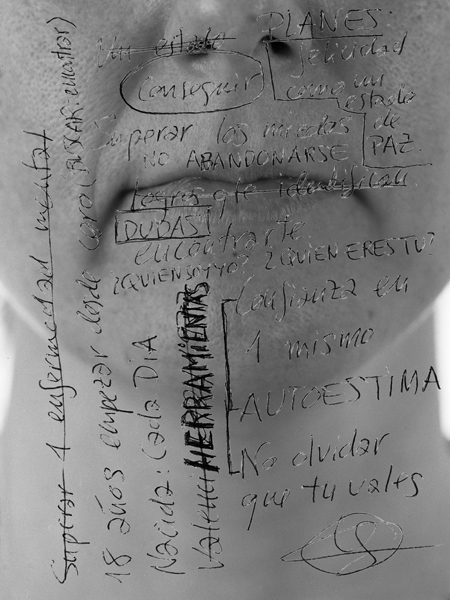 PLANES:
Un estado felicidad
Conseguir como un
estado
Superar los miedos de
NO ABANDONARSE PAZ.
logros q te identifican
DUDAS!
encontrarte
¿QUIEN SOY YO? ¿QUIEN ERES TU?
Confianza en
1 mismo
AUTOESTIMA
No olvidar
que tu vales
Superar 1 enfermedad mental
18 años empezar desde cero (BUSCAR-encontrar)
Nacida: Cada DIA
HERRAMIENTAS